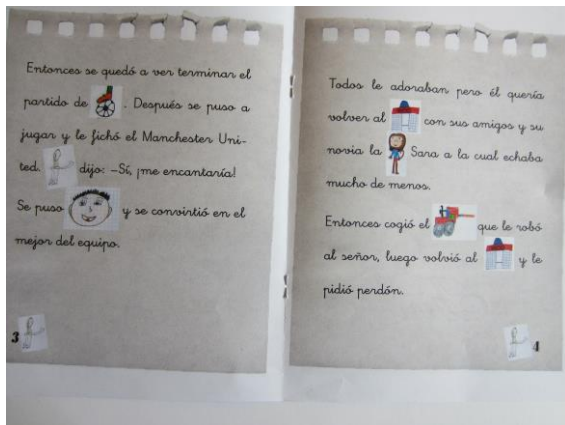 Entonces se quedó a ver terminar el
partido de . Después se puso a
jugar y le fichó el Manchester Uni-
ted. dijo: –Sí, ¡me encantaría!
Se puso y se convirtió en el
mejor del equipo.
3
Todos le adoraban pero él quería
volver al con sus amigos y su
novia la Sara a la cual echaba
mucho de menos.
Entonces cogió el que le robó
al señor, luego volvió al y le
pidió perdón.
4